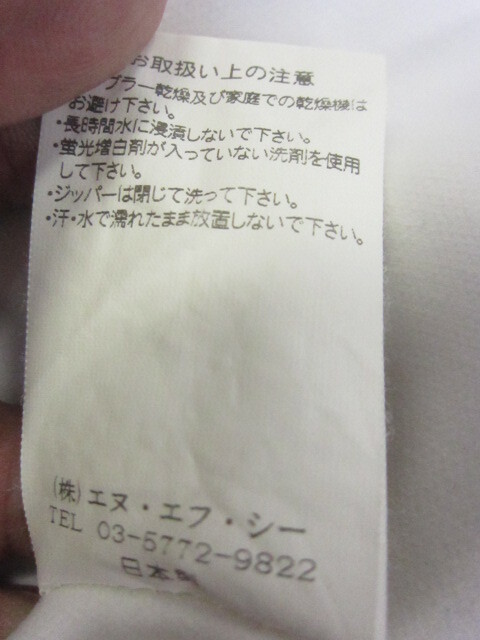 お取扱い上の注意
ブラー乾燥及び家庭での乾燥機は
お避け下さい。
・長時間水に浸漬しないで下さい。
・蛍光増白剤が入っていない洗剤を使用
して下さい。
・ジッパーは閉じて洗って下さい。
・汗・水で濡れたまま放置しないで下さい。
(株)エヌ・エフ・シー
TEL 03-5772-9822
日本製